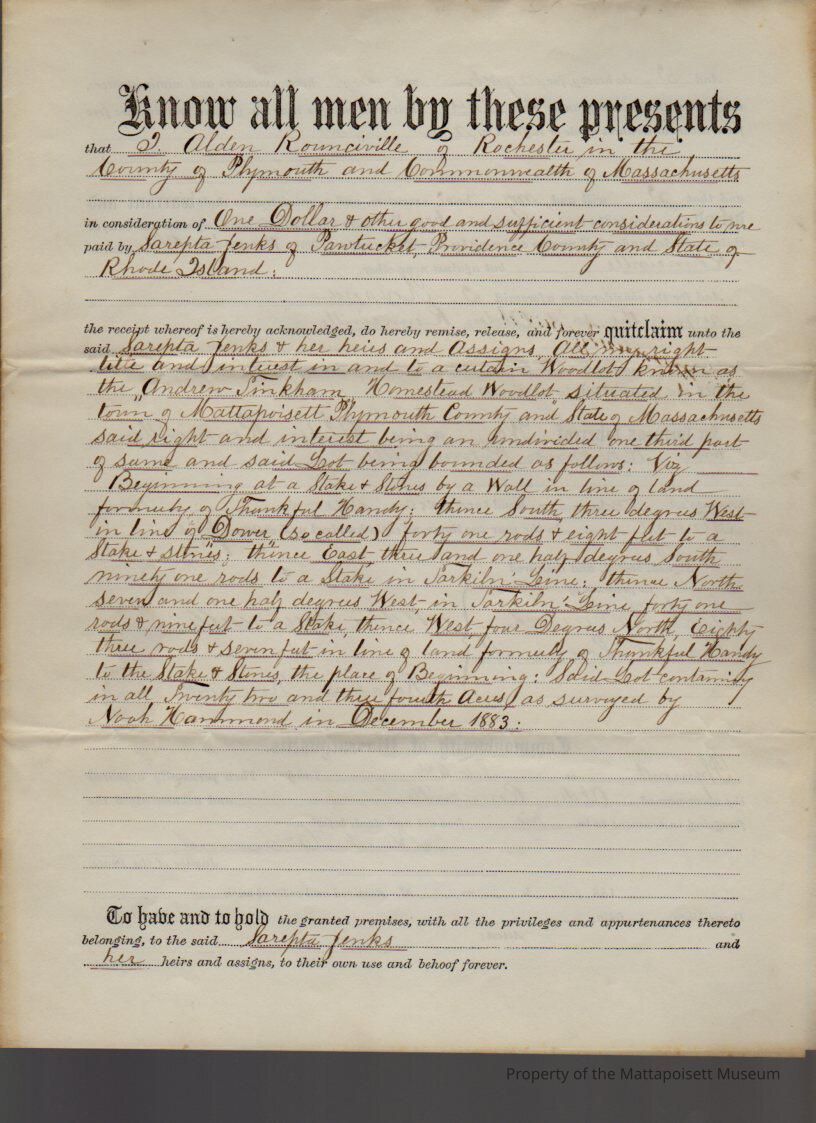 Know all men by these presents
that I, Alden Rounciville of Rochester in the
County of Plymouth and Commonwealth of Massachusetts
in consideration of One Dollar & other good and sufficient considerations to me
paid by Sarepta Jenks of Pawtucket, Providence County and State of
Rhode Island;
the receipt whereof is hereby acknowledged, do hereby remise, release, and forever quitclaim unto the
said Sarepta Jenks & her heirs and Assigns, All my right
title and interest in and to a certain Woodlot known as
the "Andrew Tinkham" Homestead Woodlot, situated in the
town of Mattapoisett Plymouth County and State of Massachusetts
said right and interest being an undivided one third part
of same and said Lot being bounded as follows: Viz
Beginning at a Stake & Stones by a Wall in line of land
formerly of Thankful Handy; thence South, three degrees West
in line of "Dower" (so called) forty one rods & eight feet to a
Stake & stones; thence East, three and one half degrees South
ninety one rods to a Stake in Tarkiln Line; thence North
seven and one half degrees West in Tarkiln Line, forty one
rods & nine feet to a Stake, thence West, four Degrees North, Eighty
three rods & seven feet in line of land formerly of Thankful Handy
to the Stake & Stones, the place of Beginning: Said Lot containing
in all Twenty two and three fourth Acres, as surveyed by
Noah Hammond in December 1883:
To have and to hold the granted premises, with all the privileges and appurtenances thereto
belonging, to the said Sarepta Jenks and
her heirs and assigns, to their own use and behoof forever.
Property of the Mattapoisett Museum